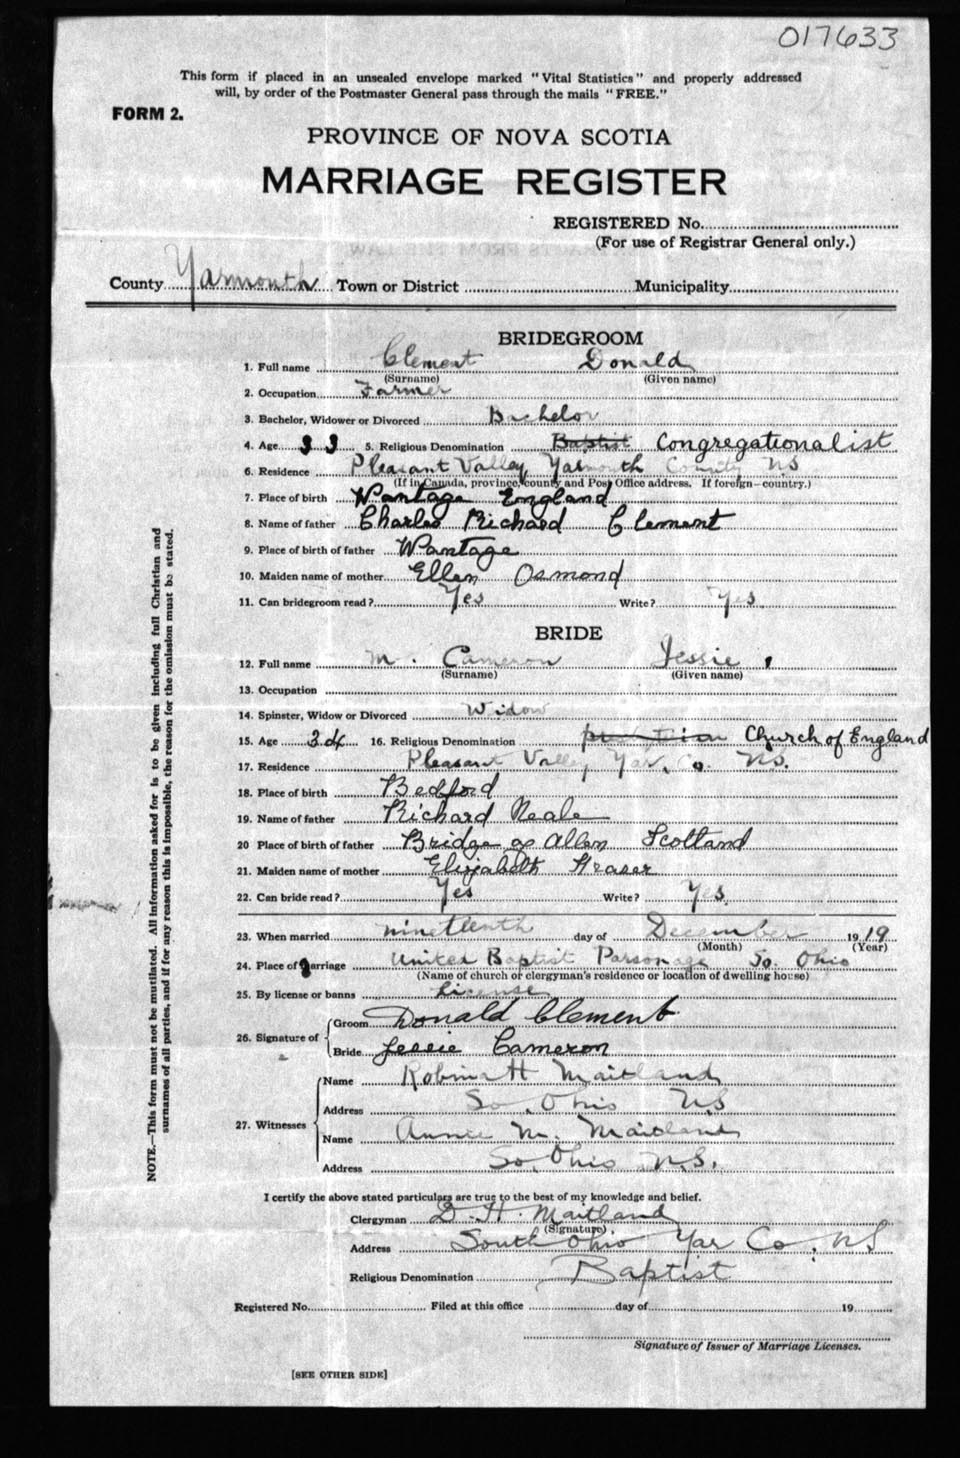 017633
This form if placed in an unsealed envelope marked "Vital Statistics" and properly addressed
will, by order of the Postmaster General pass through the mails "FREE."
FORM 2.
PROVINCE OF NOVA SCOTIA
MARRIAGE REGISTER
REGISTERED No.
(For use of Registrar General only.)
County Yarmouth Town or District Municipality
BRIDEGROOM
1. Full name Clement Donald
(Surname) (Given name)
2. Occupation Farmer
3. Bachelor, Widower or Divorced Bachelor
4. Age 33 5. Religious Denomination Baptist Congregationalist
6. Residence Pleasant Valley Yarmouth County NS
(If in Canada, province, county and Post Office address. If foreign—country.)
7. Place of birth Wantage England
8. Name of father Charles Richard Clement
9. Place of birth of father Wantage
10. Maiden name of mother Ellen Osmond
11. Can bridegroom read? Yes Write? Yes
BRIDE
12. Full name M. Cameron Jessie
(Surname) (Given name)
13. Occupation
14. Spinster, Widow or Divorced Widow
15. Age 34 16. Religious Denomination Church of England
17. Residence Pleasant Valley Yar. Co. NS.
18. Place of birth Bedford
19. Name of father Richard Neale
20 Place of birth of father Bridge of Allen Scotland
21. Maiden name of mother Elizabeth Fraser
22. Can bride read? Yes Write? Yes
23. When married nineteenth day of December 1919
(Month) (Year)
24. Place of marriage United Baptist Parsonage So. Ohio
(Name of church or clergyman's residence or location of dwelling house)
25. By license or banns License
26. Signature of Groom Donald Clement
Bride Jessie Cameron
27. Witnesses Name Robina H Maitland
Address So. Ohio NS
Name Annie M. Maitland
Address So. Ohio N.S.
I certify the above stated particulars are true to the best of my knowledge and belief.
Clergyman D. H. Maitland
(Signature)
Address South Ohio Yar Co. NS
Religious Denomination Baptist
Registered No. Filed at this office day of 19
Signature of Issuer of Marriage Licenses.
[SEE OTHER SIDE]
NOTE.—This form must not be mutilated. All information asked for is to be given including full Christian and
surnames of all parties, and if for any reason this is impossible, the reason for the omission must be stated.